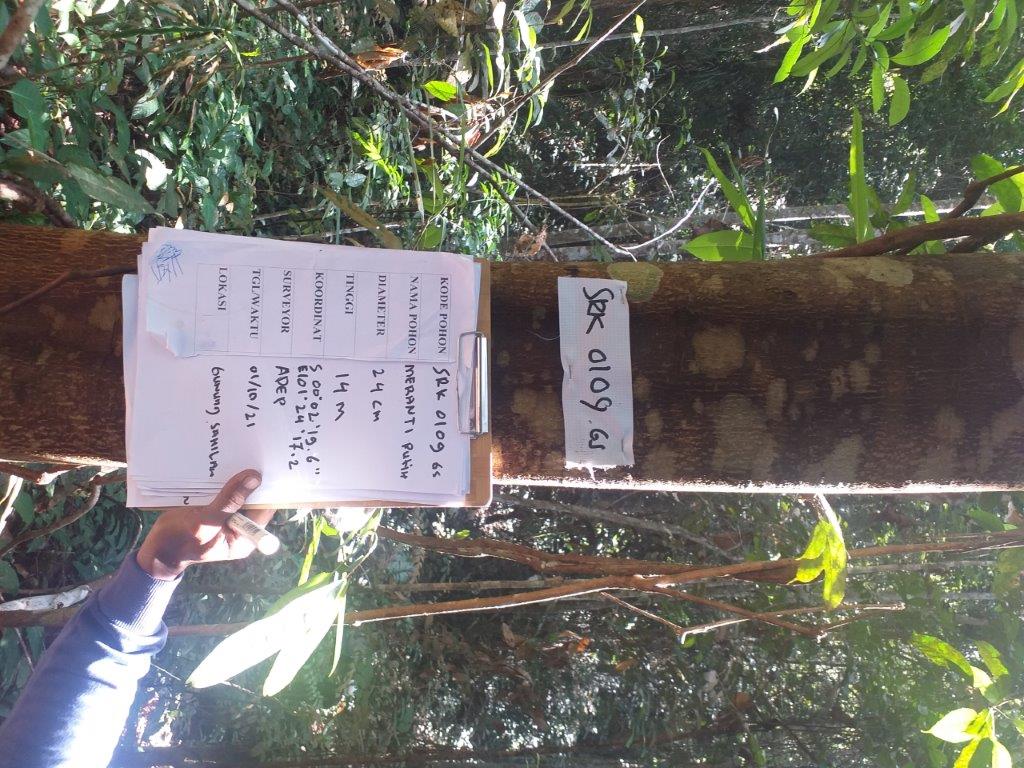 KODE POHON SRK 0109 GS
NAMA POHON MERANTI PUTIH
DIAMETER 24 cm
TINGGI 14 M
KOORDINAT S 00°02'19.6"
E101°24'17.2
SURVEYOR ADEP
TGL/WAKTU 01/10/21
LOKASI Gunung SAHILAN
SRK 0109 GS